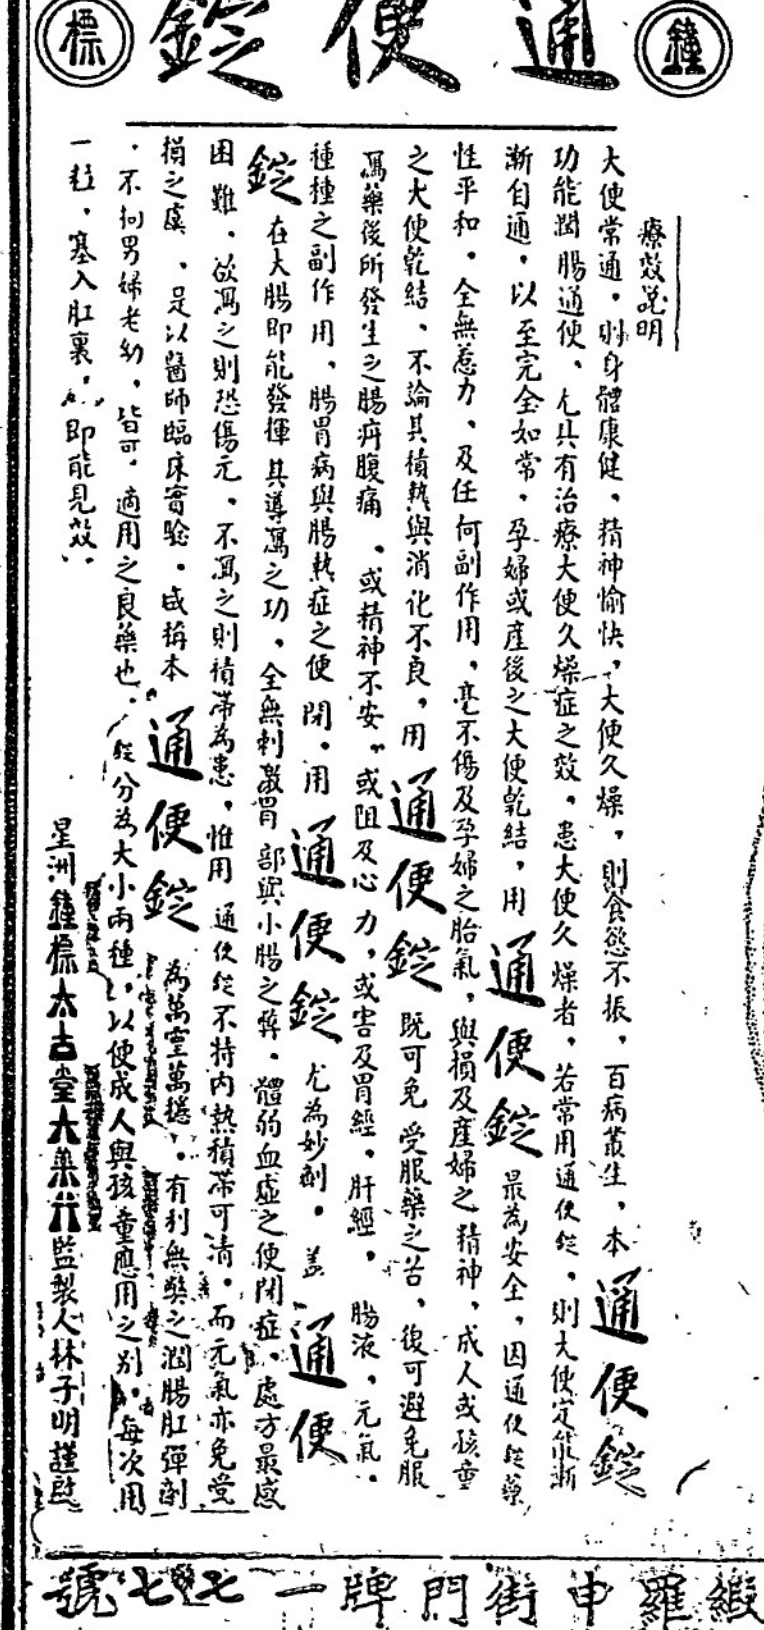 鐘標
通便錠
療效說明
大便常通，則身體康健，精神愉快，大便久燥，則食慾不振，百病叢生，本通便錠
功能潤腸通便，尤具有治療大便久燥症之效，患大便久燥者，若常用通便錠，則大便定能漸
漸自通，以至完全如常，孕婦或產後之大便乾結，用通便錠最為安全，因通便錠藥
性平和，全無惹力，及任何副作用，毫不傷及孕婦之胎氣，與損及產婦之精神，成人或孩童
之大便乾結，不論其積熱與消化不良，用通便錠既可免受服藥之苦，復可避免服
瀉藥後所發生之腸疠腹痛，或精神不安，或阻及心力，或害及胃經，肝經，腸液，元氣，
種種之副作用，腸胃病與腸熱症之便閉，用通便錠尤為妙劑，蓋通便
錠在大腸即能發揮其導瀉之功，全無刺激胃部與小腸之弊，體弱血虛之便閉症，處方最感
困難，欲瀉之則恐傷元，不瀉之則積滯為患，惟用通便錠不特內熱積滯可清，而元氣亦免受
損之虞，是以醫師臨床實驗，咸稱本通便錠為萬靈萬穩，有利無弊之潤腸肛彈劑
，不拘男婦老幼，皆可適用之良藥也，錠分為大小兩種，以便成人與孩童應用之別，每次用
一粒，塞入肛裏，即能見效
星洲鐘標太古堂大藥行監製人林子明謹啟
緞羅申街門牌一七七號